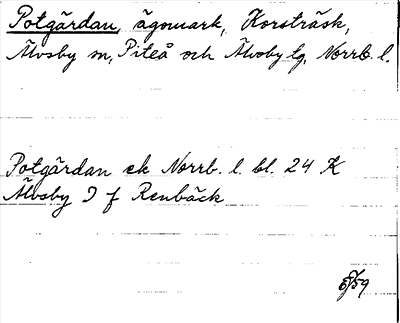 Potgärdan, ägomark, Korsträsk,
Älvsby sn, Piteå och Älvsby tg, Norrb. l.
Potgärdan ek Norrb. l. bl. 24 K
Älvsby I f Renbäck